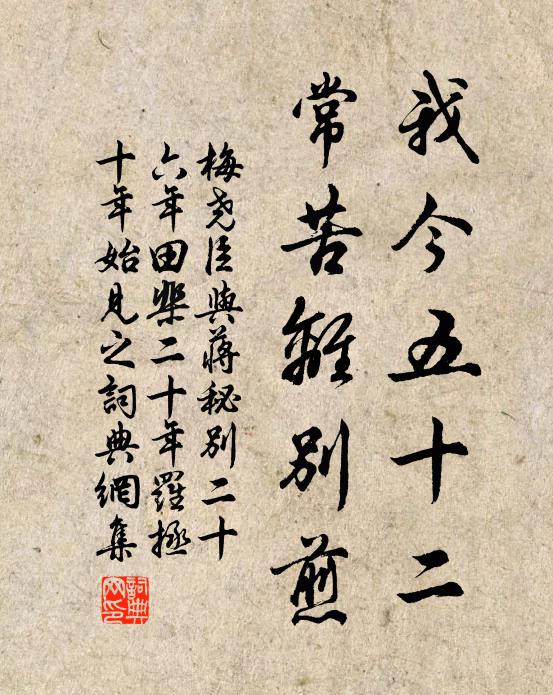 我今五十二
常苦離別煎
梅堯臣與蔣秘別二十
六年田棐二十年羅拯
十年始見之詞典網集
詞典
网印